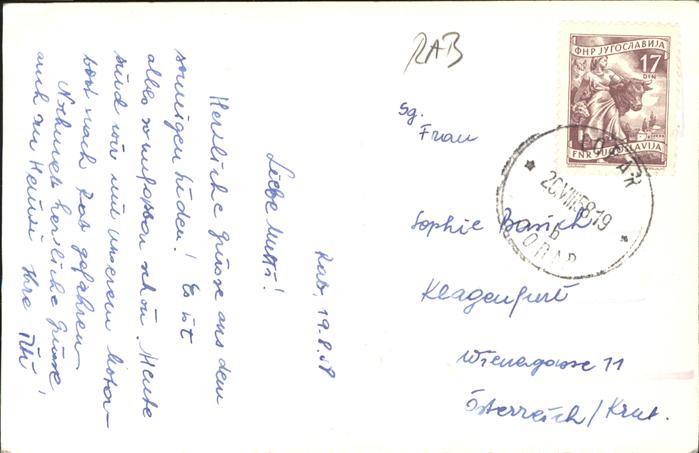 RAB
ФНР ЈУГОСЛАВИЈА
17
DIN
FNR JUGOSLAVIJA
LOPAR
20.VIII.58-19
b
Sg.
Frau
Sophie
Klagenfurt
Wienergasse 11
Österreich/Krnt.
Rab, 19.8.58
Liebe Mutti!
Herzliche Grüsse aus dem
sonnigen Süden! Es ist
alles so schön. Heute
sind wir mit unserem Motor-
boot nach Rab gefahren
Nochmals herzliche Grüsse
auch an Heinzi Ihre